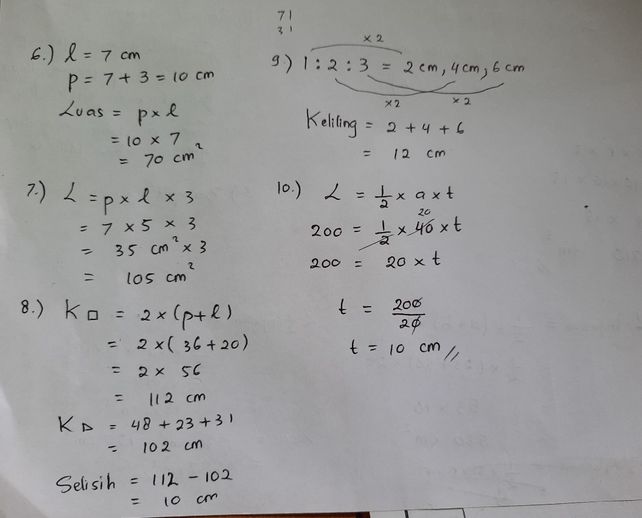 6.) l = 7 cm
p = 7 + 3 = 10 cm
Luas = p x l
= 10 x 7
= 70 cm²
7.) L = p x l x 3
= 7 x 5 x 3
= 35 cm² x 3
= 105 cm²
8.) K □ = 2 x (p+l)
= 2 x (36+20)
= 2 x 56
= 112 cm
K ▷ = 48 + 23 + 31
= 102 cm
Selisih = 112 - 102
= 10 cm
71
31
x 2
9.) 1 : 2 : 3 = 2 cm, 4 cm, 6 cm
x2 x 2
Keliling = 2 + 4 + 6
= 12 cm
10.) L = 1/2 x a x t
20
200 = 1/2 x 40 x t
200 = 20 x t
t = 200/20
t = 10 cm //